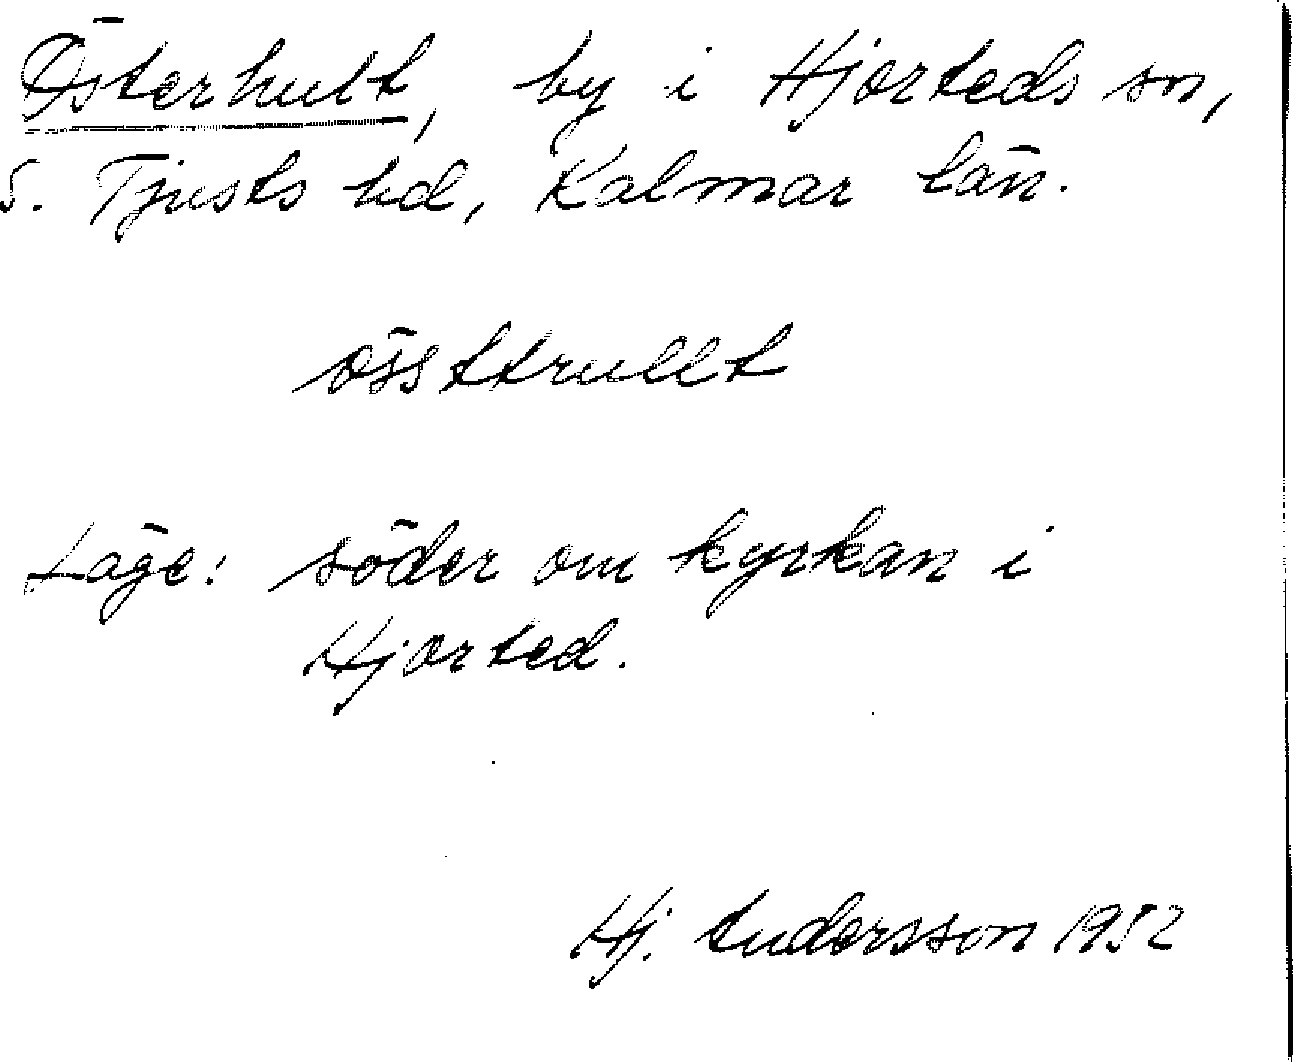 Österhult, by i Hjorteds sn,
S. Tjusts hd, Kalmar län.
össttrullt
Läge: söder om kyrkan i
Hjorted.
Hj. Andersson 1952